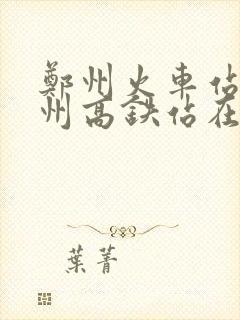 鄭州火車佔
州高鉄佔在
葉菁